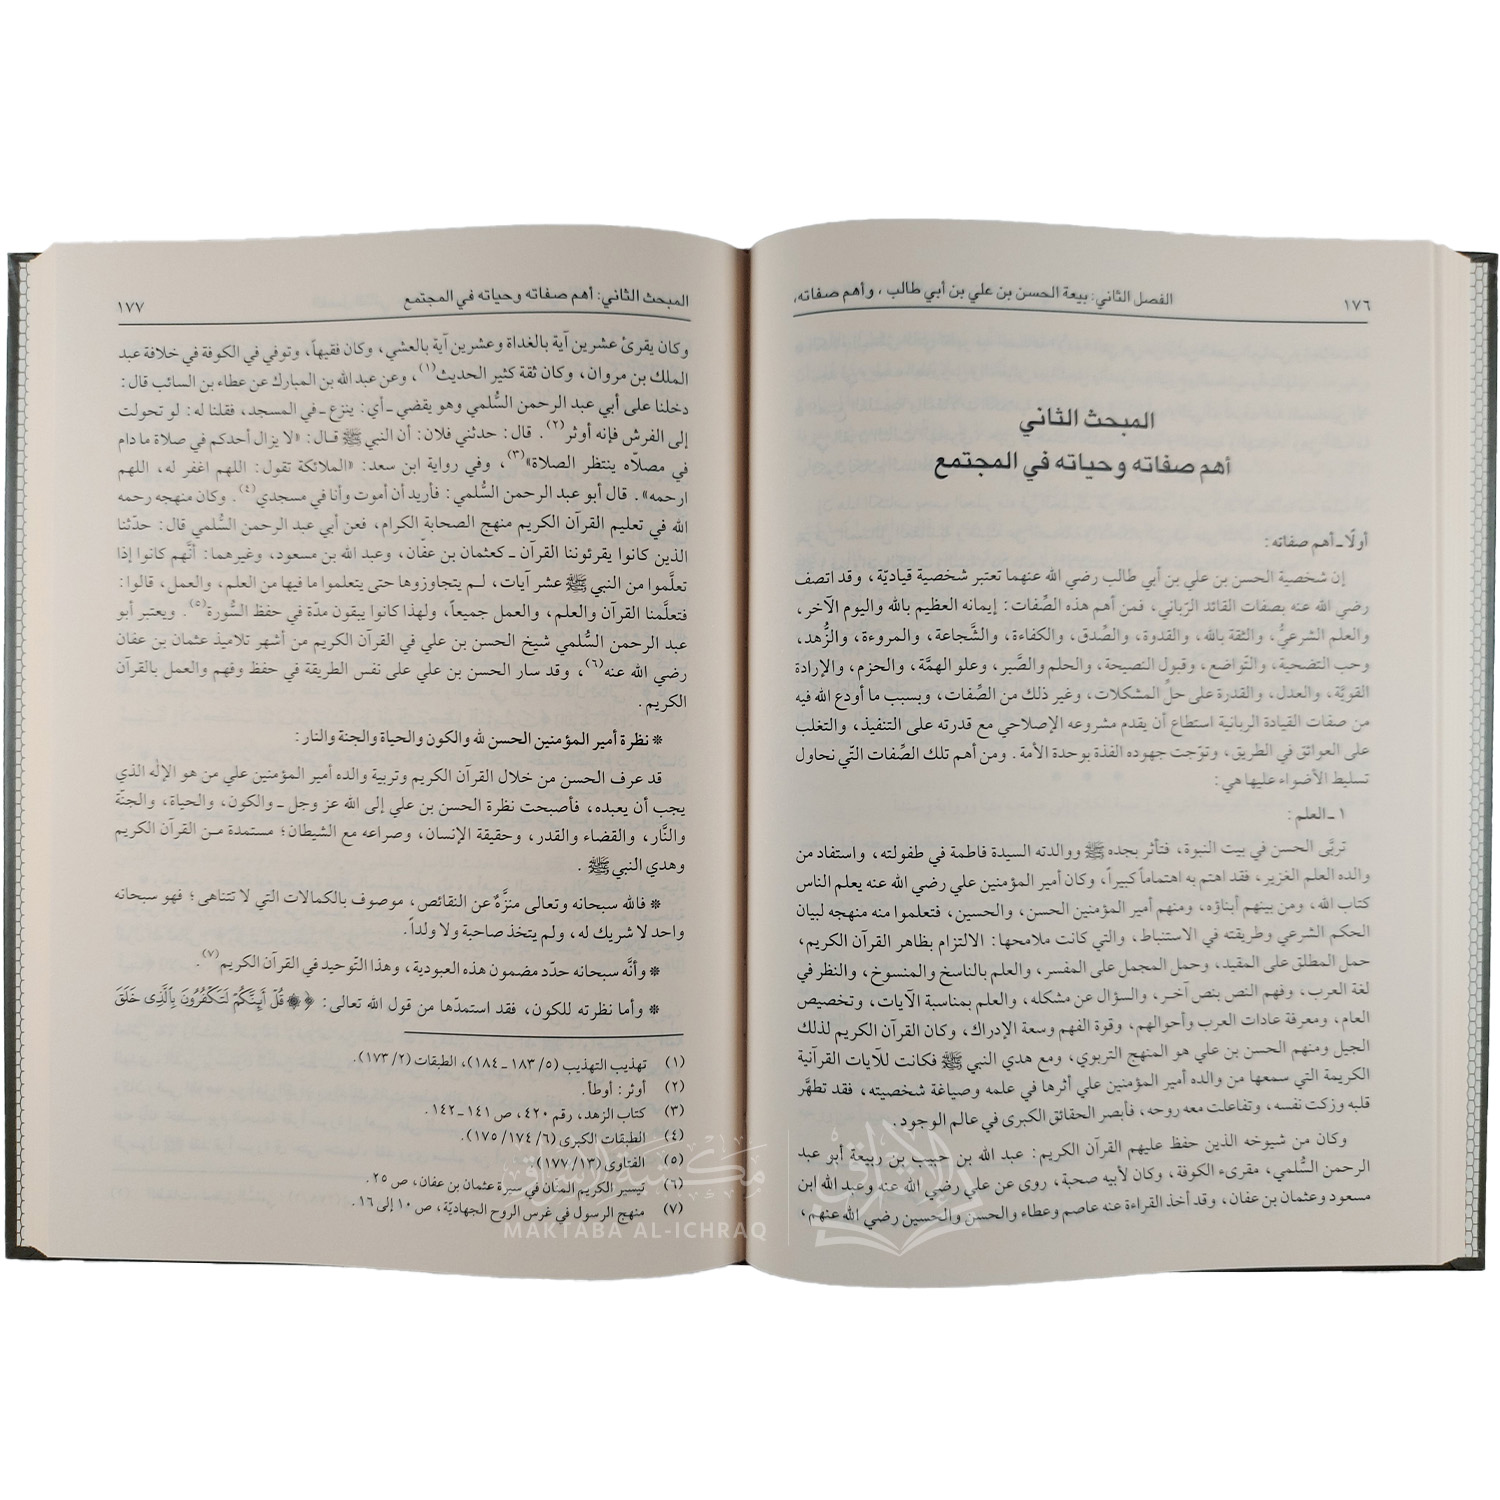 ١٧٦
الفصل الثاني: بيعة الحسن بن علي بن أبي طالب، وأهم صفاته،
المبحث الثاني
أهم صفاته وحياته في المجتمع
أولًا ـ أهم صفاته:
إن شخصية الحسن بن علي بن أبي طالب رضي الله عنهما تعتبر شخصية قياديّة، وقد اتصف
رضي الله عنه بصفات القائد الرّباني، فمن أهم هذه الصِّفات: إيمانه العظيم بالله واليوم الآخر،
والعلم الشرعيُّ، والثقة بالله، والقدوة، والصِّدق، والكفاءة، والشَّجاعة، والمروءة، والزُّهد،
وحب التضحية، والتّواضع، وقبول النصيحة، والحلم والصَّبر، وعلو الهمَّة، والحزم، والإرادة
القويَّة، والعدل، والقدرة على حلِّ المشكلات، وغير ذلك من الصِّفات، وبسبب ما أودع الله فيه
من صفات القيادة الربانية استطاع أن يقدم مشروعه الإصلاحي مع قدرته على التنفيذ، والتغلب
على العوائق في الطريق، وتوّجت جهوده الفذة بوحدة الأمة. ومن أهم تلك الصِّفات التّي نحاول
تسليط الأضواء عليها هي:
١ ـ العلم:
تربَّى الحسن في بيت النبوة، فتأثر بجده ﷺ ووالدته السيدة فاطمة في طفولته، واستفاد من
والده العلم الغزير، فقد اهتم به اهتماماً كبيراً، وكان أمير المؤمنين علي رضي الله عنه يعلم الناس
كتاب الله، ومن بينهم أبناؤه، ومنهم أمير المؤمنين الحسن، والحسين، فتعلموا منه منهجه لبيان
الحكم الشرعي وطريقته في الاستنباط، والتي كانت ملامحها: الالتزام بظاهر القرآن الكريم،
حمل المطلق على المقيد، وحمل المجمل على المفسر، والعلم بالناسخ والمنسوخ، والنظر في
لغة العرب، وفهم النص بنص آخر، والسؤال عن مشكله، والعلم بمناسبة الآيات، وتخصيص
العام، ومعرفة عادات العرب وأحوالهم، وقوة الفهم وسعة الإدراك، وكان القرآن الكريم لذلك
الجيل ومنهم الحسن بن علي هو المنهج التربوي، ومع هدي النبي ﷺ فكانت للآيات القرآنية
الكريمة التي سمعها من والده أمير المؤمنين علي أثرها في علمه وصياغة شخصيته، فقد تطهَّر
قلبه وزكت نفسه، وتفاعلت معه روحه، فأبصر الحقائق الكبرى في عالم الوجود.
وكان من شيوخه الذين حفظ عليهم القرآن الكريم: عبد الله بن حبيب بن ربيعة أبو عبد
الرحمن السُّلمي، مقرىء الكوفة، وكان لأبيه صحبة، روى عن علي رضي الله عنه وعبد الله ابن
مسعود وعثمان بن عفان، وقد أخذ القراءة عنه عاصم وعطاء والحسن والحسين رضي الله عنهم،
المبحث الثاني: أهم صفاته وحياته في المجتمع
١٧٧
وكان يقرئ عشرين آية بالغداة وعشرين آية بالعشي، وكان فقيهاً، وتوفي في الكوفة في خلافة عبد
الملك بن مروان، وكان ثقة كثير الحديث(١)، وعن عبد الله بن المبارك عن عطاء بن السائب قال:
دخلنا على أبي عبد الرحمن السُّلمي وهو يقضي ـ أي: ينزع ـ في المسجد، فقلنا له: لو تحولت
إلى الفرش فإنه أوثر(٢). قال: حدثني فلان: أن النبي ﷺ قال: «لا يزال أحدكم في صلاة ما دام
في مصلاّه ينتظر الصلاة»(٣)، وفي رواية ابن سعد: «الملائكة تقول: اللهم اغفر له، اللهم
ارحمه». قال أبو عبد الرحمن السُّلمي: فأريد أن أموت وأنا في مسجدي(٤). وكان منهجه رحمه
الله في تعليم القرآن الكريم منهج الصحابة الكرام، فعن أبي عبد الرحمن السُّلمي قال: حدّثنا
الذين كانوا يقرئوننا القرآن ـ كعثمان بن عفّان، وعبد الله بن مسعود، وغيرهما: أنَّهم كانوا إذا
تعلَّموا من النبي ﷺ عشر آيات، لم يتجاوزوها حتى يتعلموا ما فيها من العلم، والعمل، قالوا:
فتعلَّمنا القرآن والعلم، والعمل جميعاً، ولهذا كانوا يبقون مدّة في حفظ السُّورة(٥). ويعتبر أبو
عبد الرحمن السُّلمي شيخ الحسن بن علي في القرآن الكريم من أشهر تلاميذ عثمان بن عفان
رضي الله عنه(٦)، وقد سار الحسن بن علي على نفس الطريقة في حفظ وفهم والعمل بالقرآن
الكريم.
* نظرة أمير المؤمنين الحسن لله والكون والحياة والجنة والنار:
قد عرف الحسن من خلال القرآن الكريم وتربية والده أمير المؤمنين علي من هو الإله الذي
يجب أن يعبده، فأصبحت نظرة الحسن بن علي إلى الله عز وجل ـ والكون، والحياة، والجنّة
والنَّار، والقضاء والقدر، وحقيقة الإنسان، وصراعه مع الشيطان؛ مستمدة من القرآن الكريم
وهدي النبي ﷺ.
* فالله سبحانه وتعالى منزَّهٌ عن النقائص، موصوف بالكمالات التي لا تتناهى؛ فهو سبحانه
واحد لا شريك له، ولم يتخذ صاحبة ولا ولداً.
* وأنَّه سبحانه حدّد مضمون هذه العبودية، وهذا التّوحيد في القرآن الكريم(٧).
* وأما نظرته للكون، فقد استمدّها من قول الله تعالى: ﴿ ۞ قُلْ أَئِنَّكُمْ لَتَكْفُرُونَ بِالَّذِي خَلَقَ
(١) تهذيب التهذيب (٥/ ١٨٣ ـ ١٨٤)، الطبقات (٢/ ١٧٣).
(٢) أوثر: أوطأ.
(٣) كتاب الزهد، رقم ٤٢٠، ص ١٤١ ـ ١٤٢.
(٤) الطبقات الكبرى (٦/ ١٧٤/ ١٧٥).
(٥) الفتاوى (١٣/ ١٧٧).
(٦) تيسير الكريم المنّان في سيرة عثمان بن عفان، ص ٢٥.
(٧) منهج الرسول في غرس الروح الجهاديّة، ص ١٠ إلى ١٦.
مكتبة الإشراق
MAKTABA AL-ICHRAQ
الإشراق